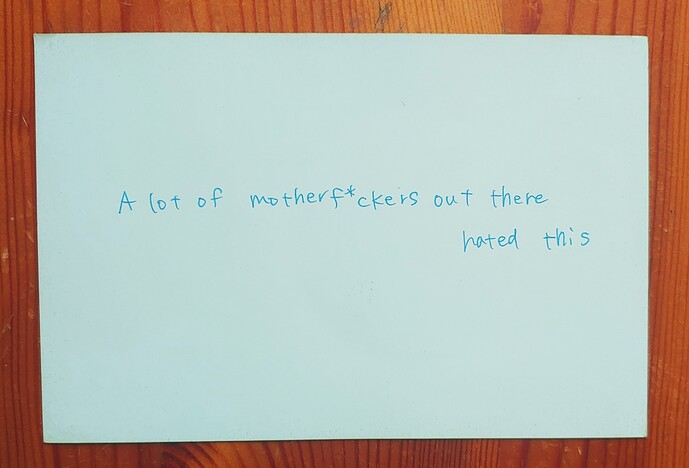 A lot of motherf*ckers out there
hated this